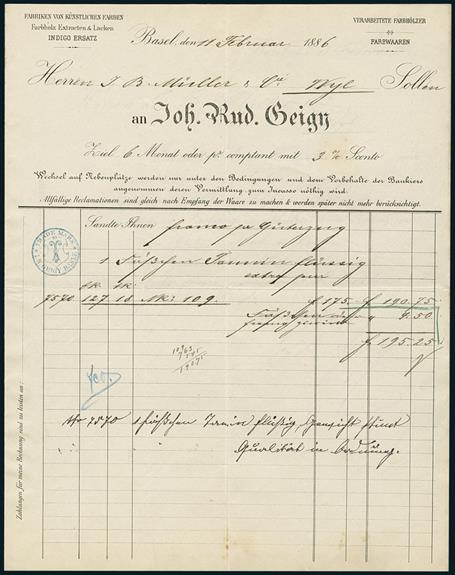 FABRIKEN VON KÜNSTLICHEN FARBEN
Farbholz Extracten & Lacken
INDIGO ERSATZ
VERARBEITETE FARBHÖLZER
FARBWAAREN
Basel, den 11 Februar 1886
Herren J. B. Müller & Cie Wyl Sollen
an Joh. Rud. Geigy
Ziel 6 Monat oder pr. comptant mit 3 % Sconto
Wechsel auf Nebenplätze werden nur unter den Bedingungen und dem Vorbehalte der Bankiers
angenommen deren Vermittlung zum Incasso nöthig wird.
Allfällige Reclamationen sind gleich nach Empfang der Waare zu machen & werden später nicht mehr berücksichtigt.
Sandte Ihnen franco pr Güterzug
TRADE MARK
1 Fässchen Tannin flüssig
extra pur
7570 127 18 Nk: 109. f 175. f 190.75
Fässchen
" 4.50
f. 195.25
No 7570 1 Fässchen Tanin flüssig, Gewicht stimt
Qualität in Ordnung.
Zahlungen für meine Rechnung sind zu leisten an: